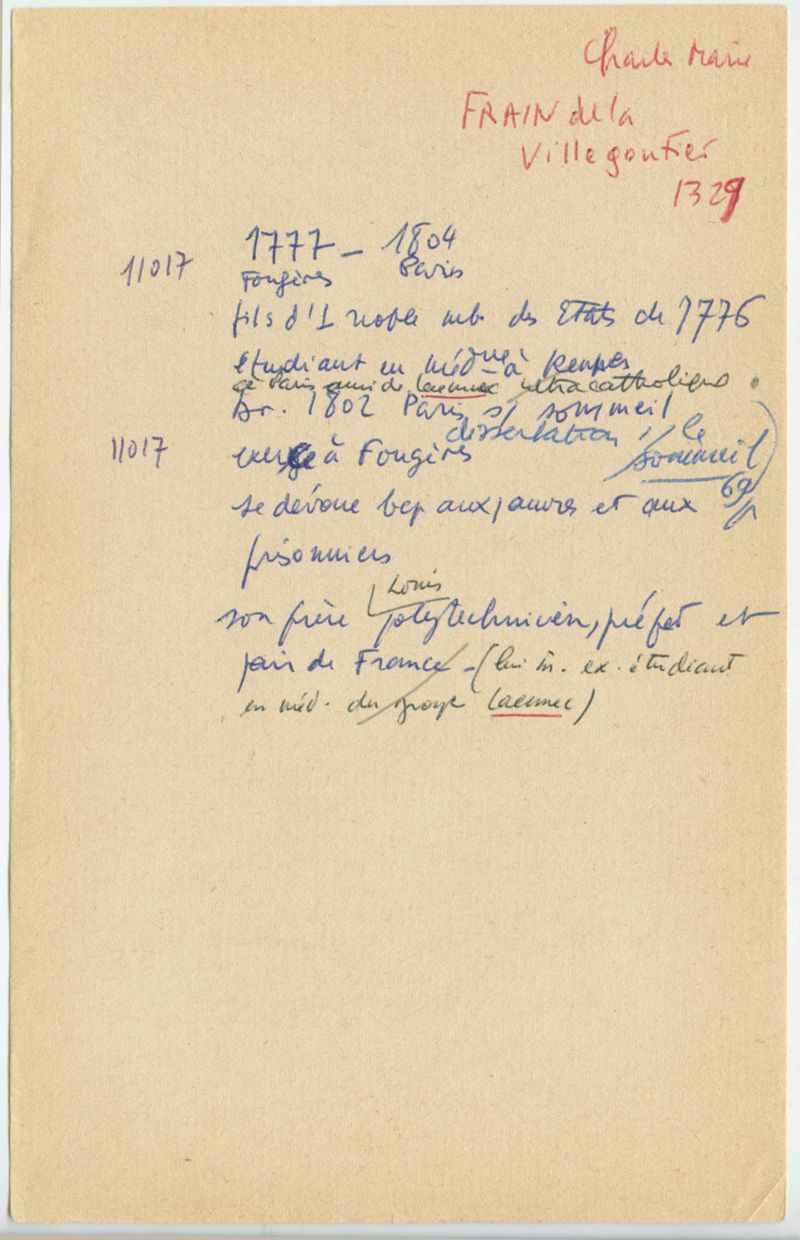 Charles Marie
FRAIN de la
Villegontier
1329
11017 1777 - 1804
Fougères Paris
fils d'1 noble mb. des Etats de 1776
étudiant en médne à Rennes
à Paris ami de Laennec ultracatholique
Dr. 1802 Paris s/ sommeil
dissertation s/ le sommeil
69 p
11017 exerce à Fougères
se dévoue bcp aux pauvres et aux
prisonniers
son frère Louis polytechnicien, préfet et
pair de France - (lui m. ex. étudiant
en méd. du groupe Laennec)